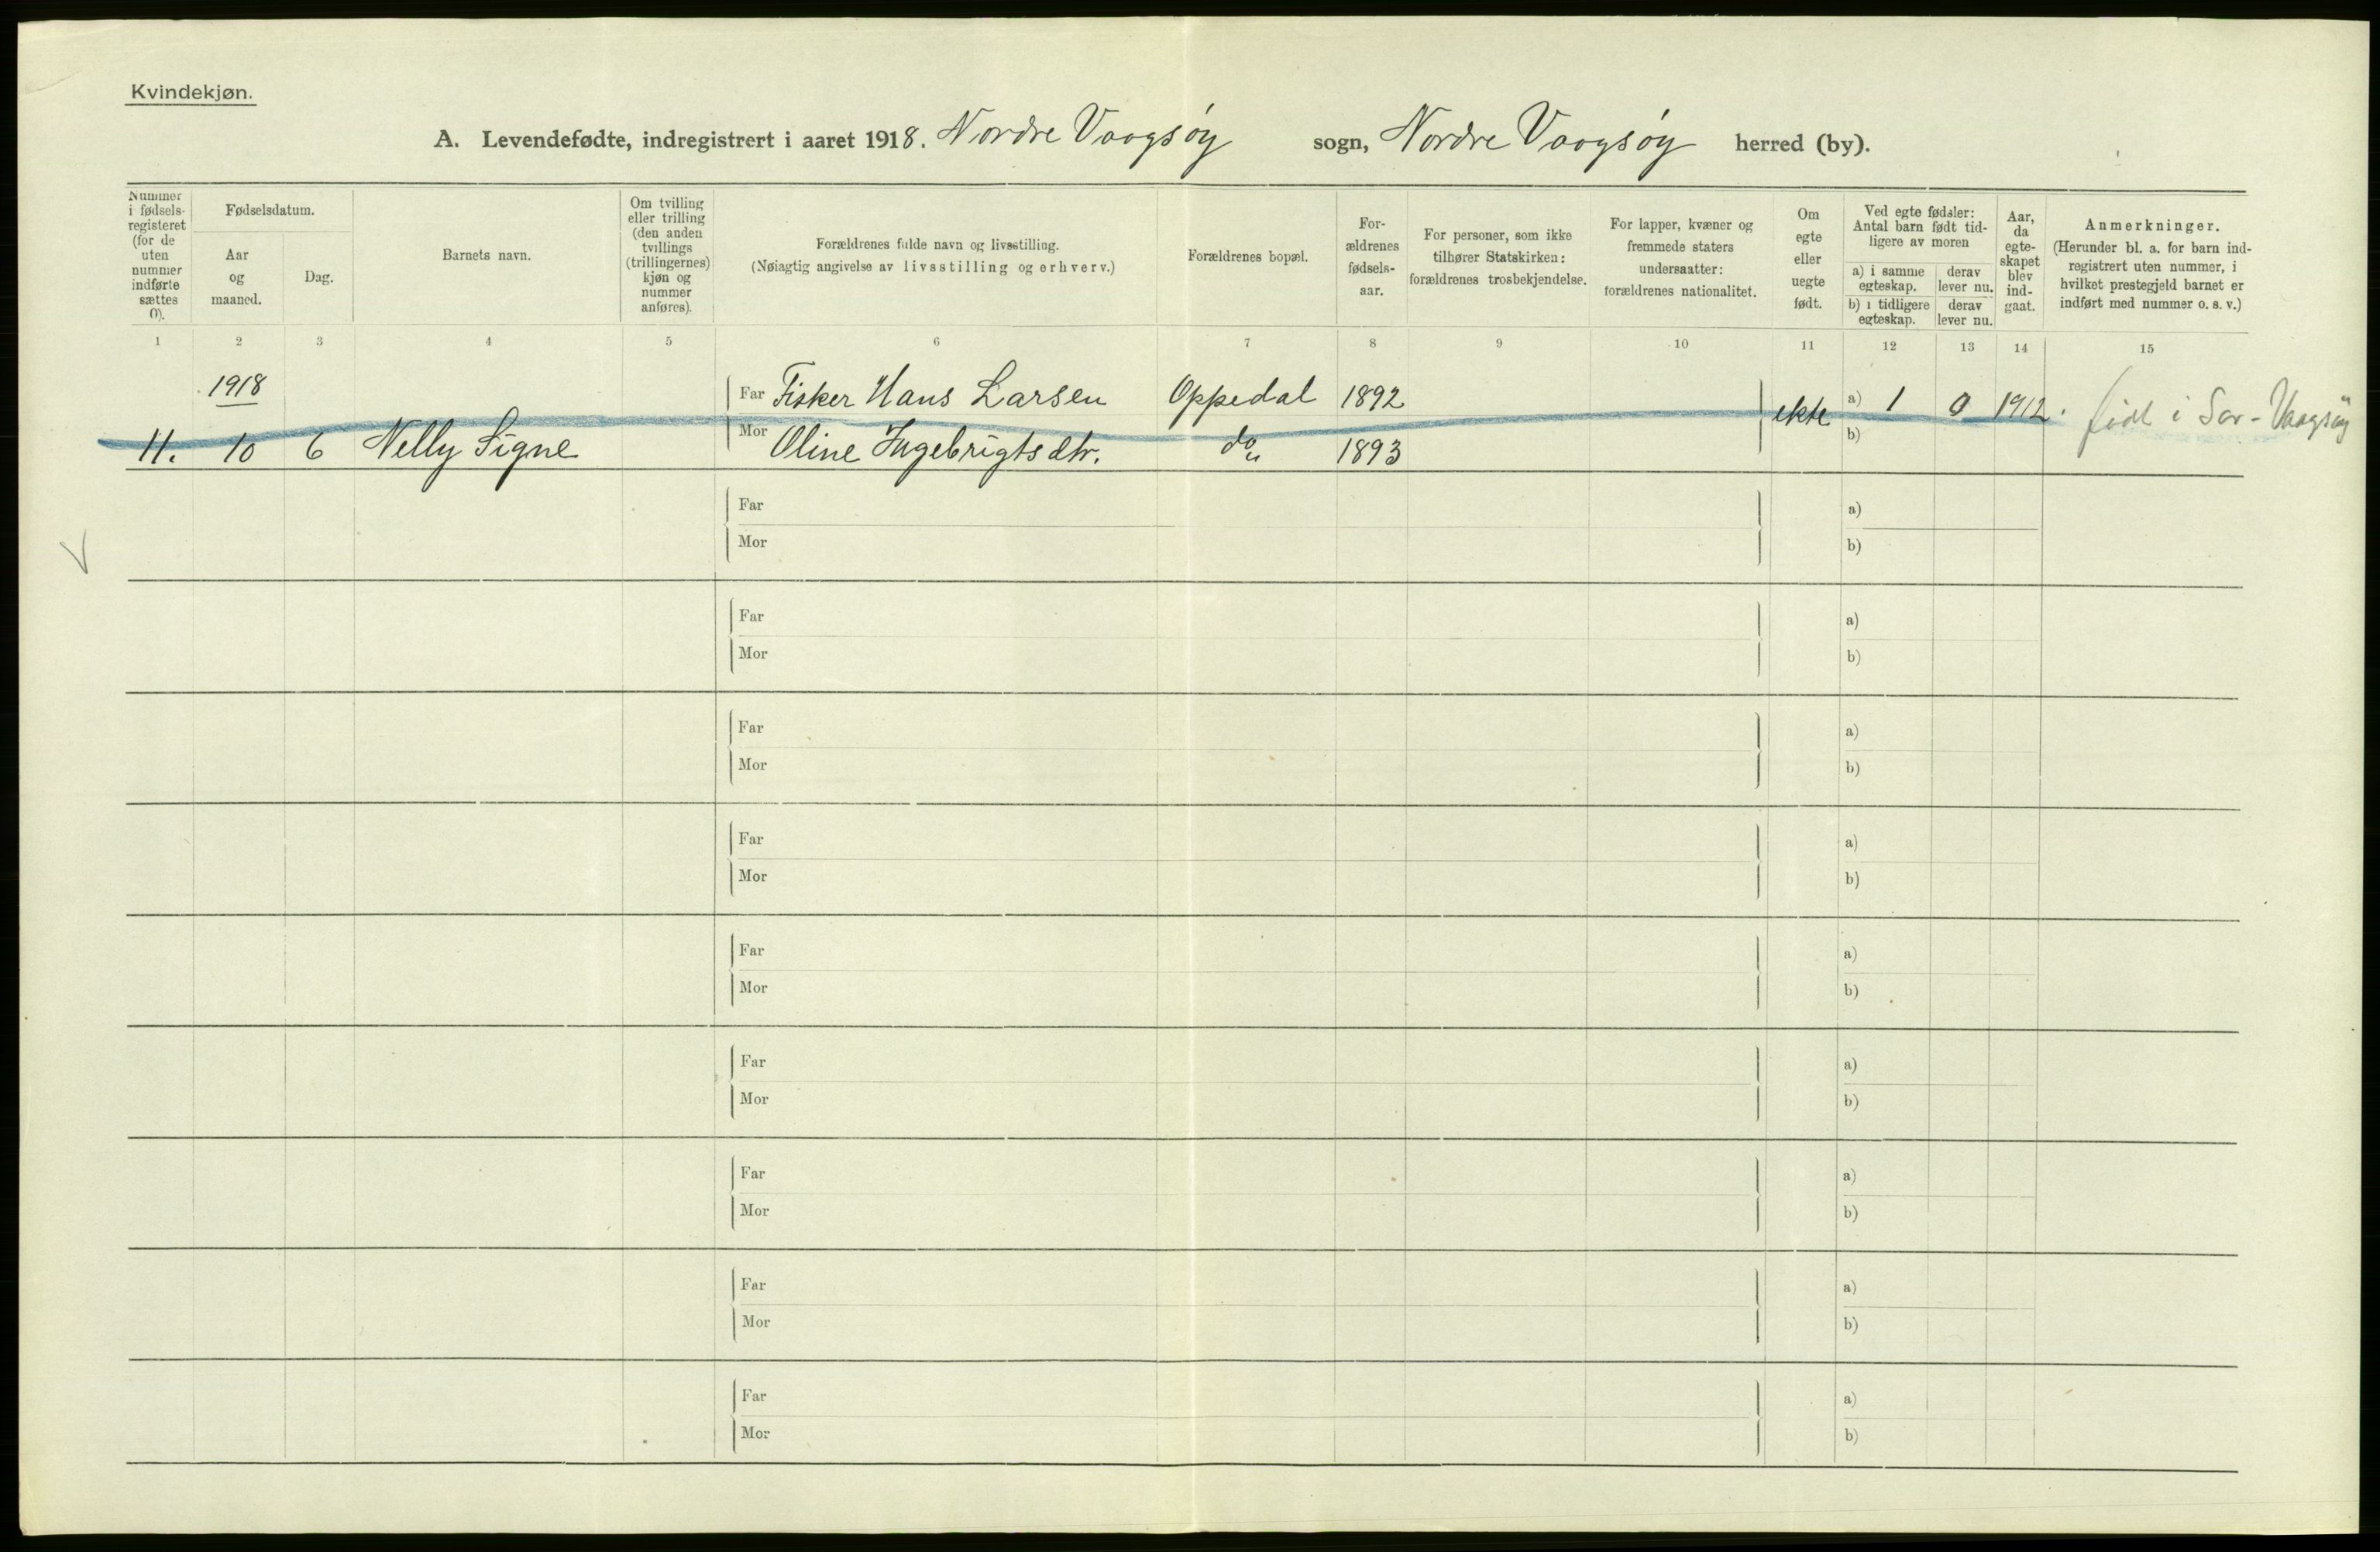 Kvindekjøn.
A. Levendefødte, indregistrert i aaret 1918. Nordre Vaagsøy sogn, Nordre Vaagsøy herred (by).
Nummer
i fødsels-
registeret
(for de
uten
nummer
indførte
sættes
0).
Fødselsdatum.
Aar
og
maaned.
Dag.
Barnets navn.
Om tvilling
eller trilling
(den anden
tvillings
(trillingernes)
kjøn og
nummer
anføres).
Forældrenes fulde navn og livsstilling.
(Nøiagtig angivelse av livsstilling og erhverv.)
Forældrenes bopæl.
For-
ældrenes
fødsels-
aar.
For personer, som ikke
tilhører Statskirken:
forældrenes trosbekjendelse.
For lapper, kvæner og
fremmede staters
undersaatter:
forældrenes nationalitet.
Om
egte
eller
uegte
født.
Ved egte fødsler:
Antal barn født tid-
ligere av moren
a) i samme
egteskap.
derav
lever nu.
b) i tidligere
egteskap.
derav
lever nu.
Aar,
da
egte-
skapet
blev
ind-
gaat.
Anmerkninger.
(Herunder bl. a. for barn ind-
registrert uten nummer, i
hvilket prestegjeld barnet er
indført med nummer o. s. v.)
1 2 3 4 5 6 7 8 9 10 11 12 13 14 15
1918 Far Fisker Hans Larsen Oppedal 1892 ekte a) 1 0 1912. født i Sør-Vaagsøy
11. 10 6 Nelly Signe Mor Oline Ingebrigtsdtr. do 1893 b)
Far a)
Mor b)
Far a)
Mor b)
Far a)
Mor b)
Far a)
Mor b)
Far a)
Mor b)
Far a)
Mor b)
Far a)
Mor b)
Far a)
Mor b)
Far a)
Mor b)